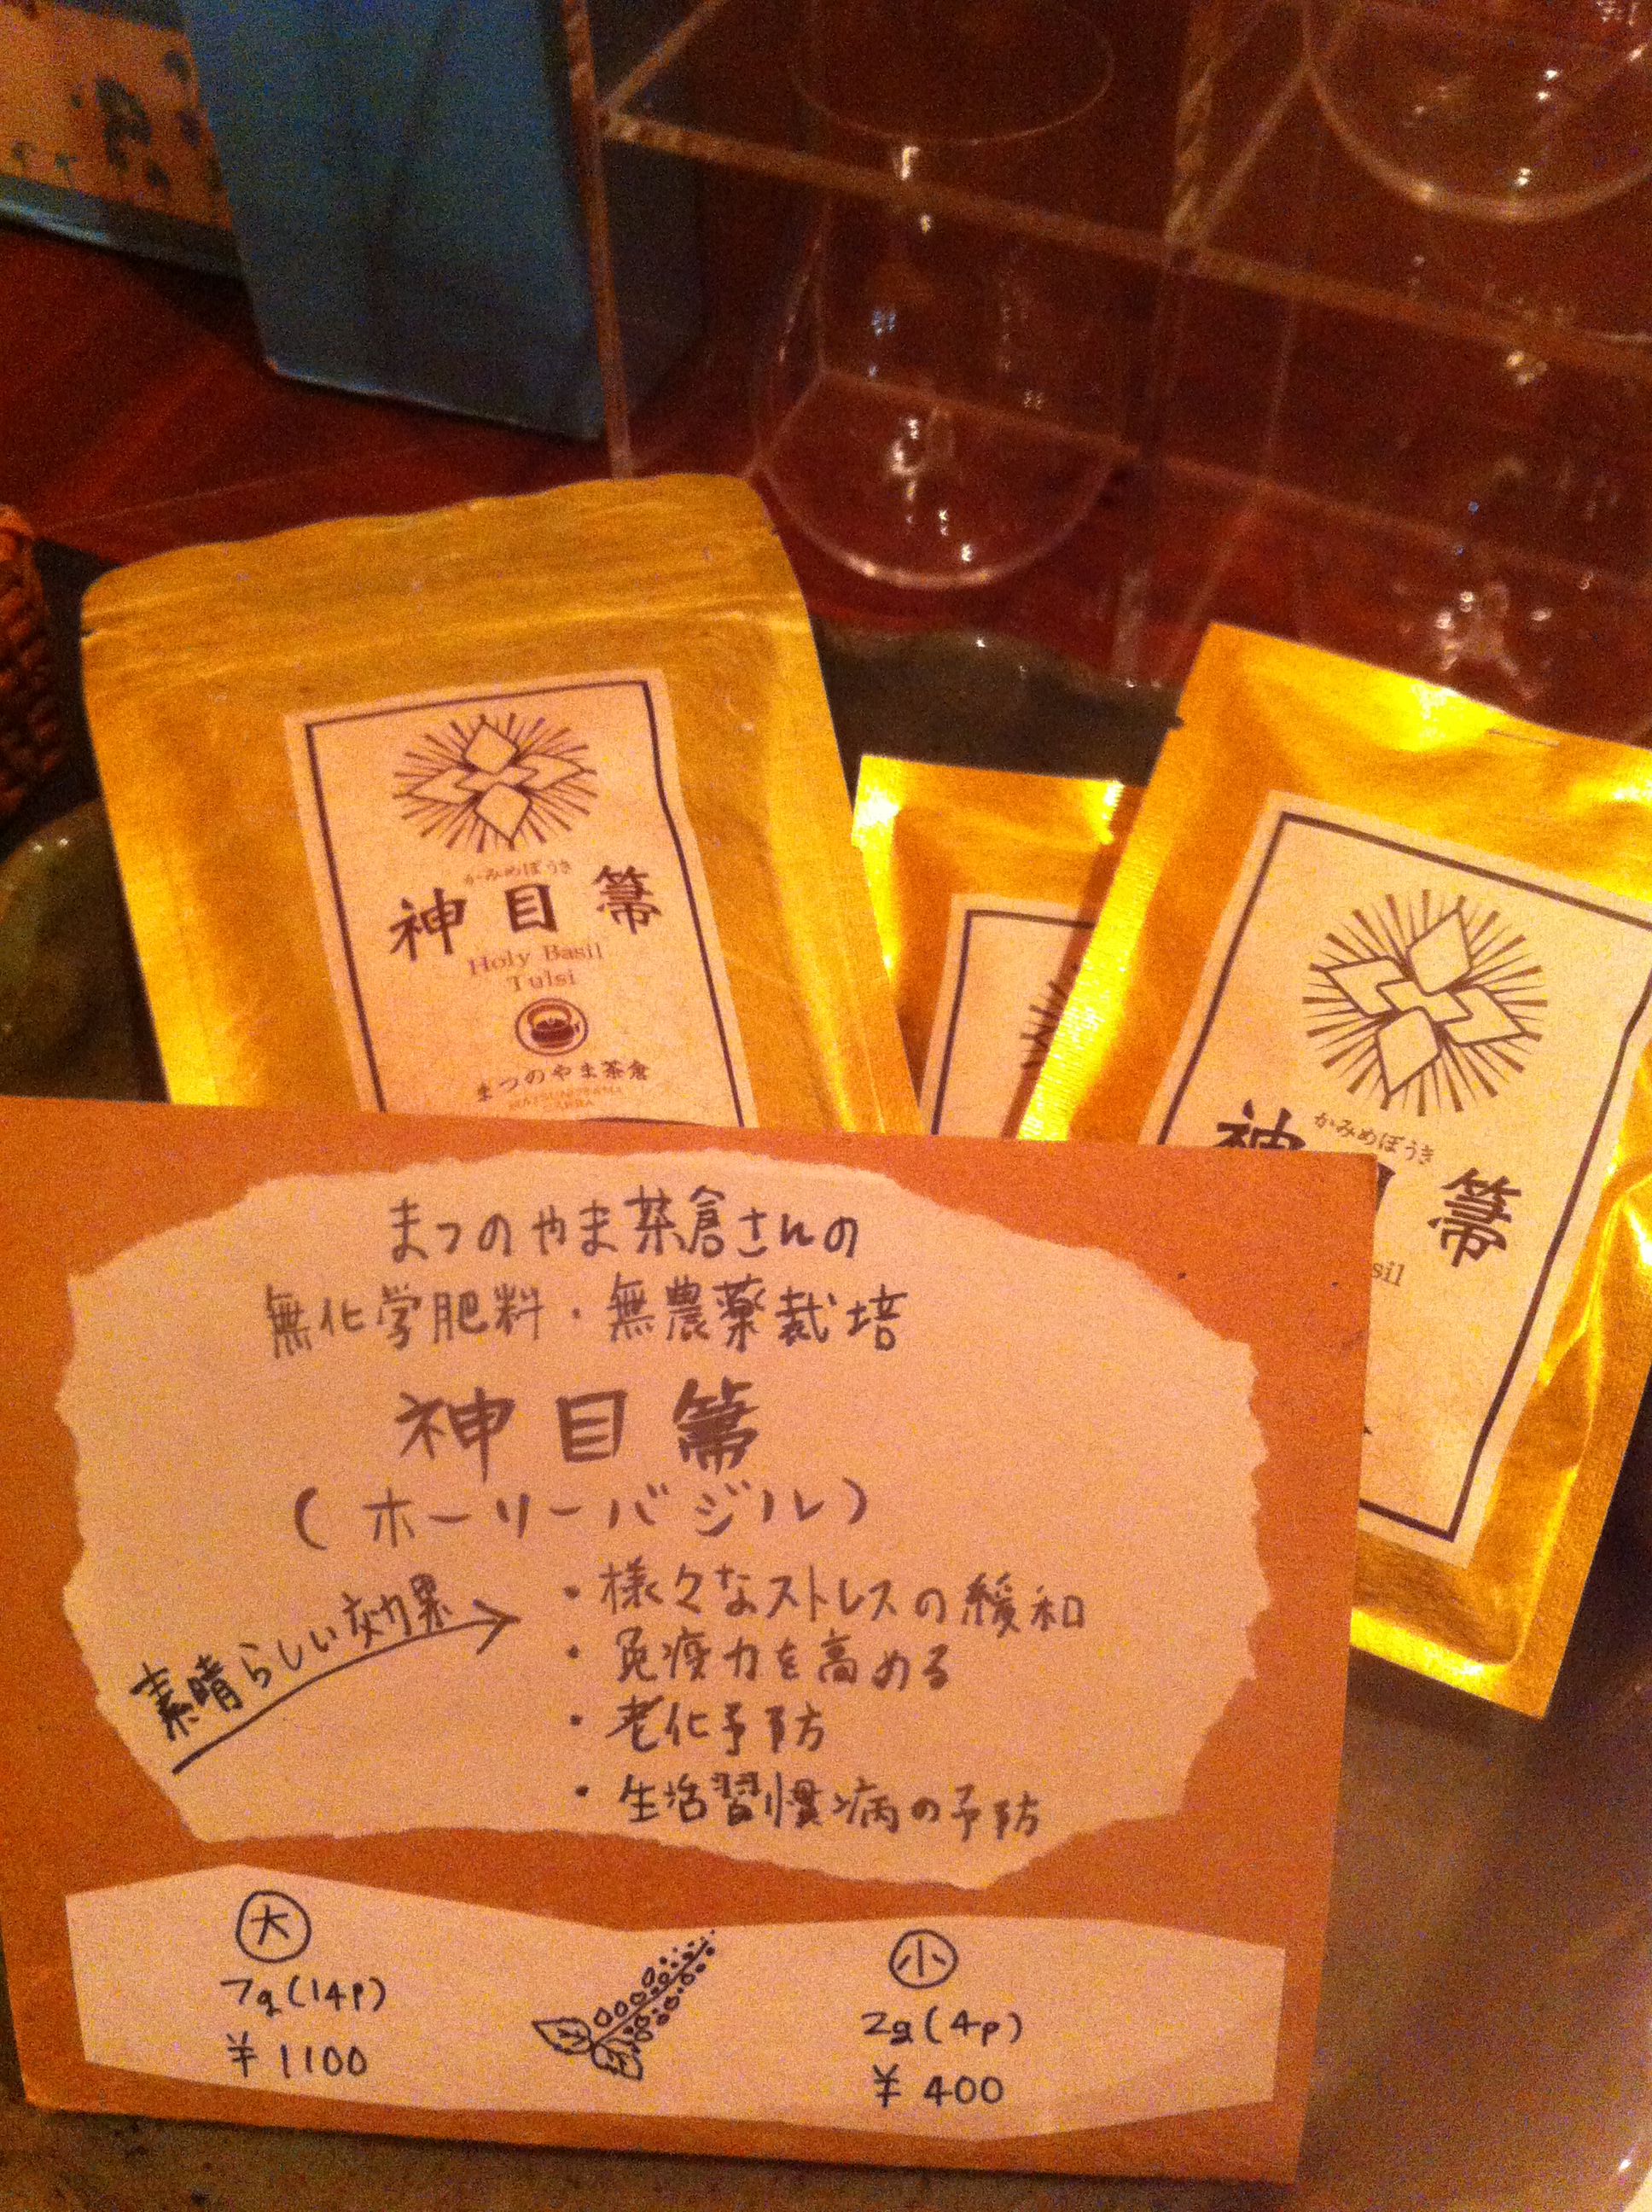 かみめぼうき
神目箒
Holy Basil
Tulsi
まつのやま茶倉
かみめぼうき
神目箒
sil
まつのやま茶倉さんの
無化学肥料・無農薬栽培
神目箒
(ホーリーバジル)
素晴らしい効果
・様々なストレスの緩和
・免疫力を高める
・老化予防
・生活習慣病の予防
大
7g(14p)
¥1100
小
2g(4p)
¥400